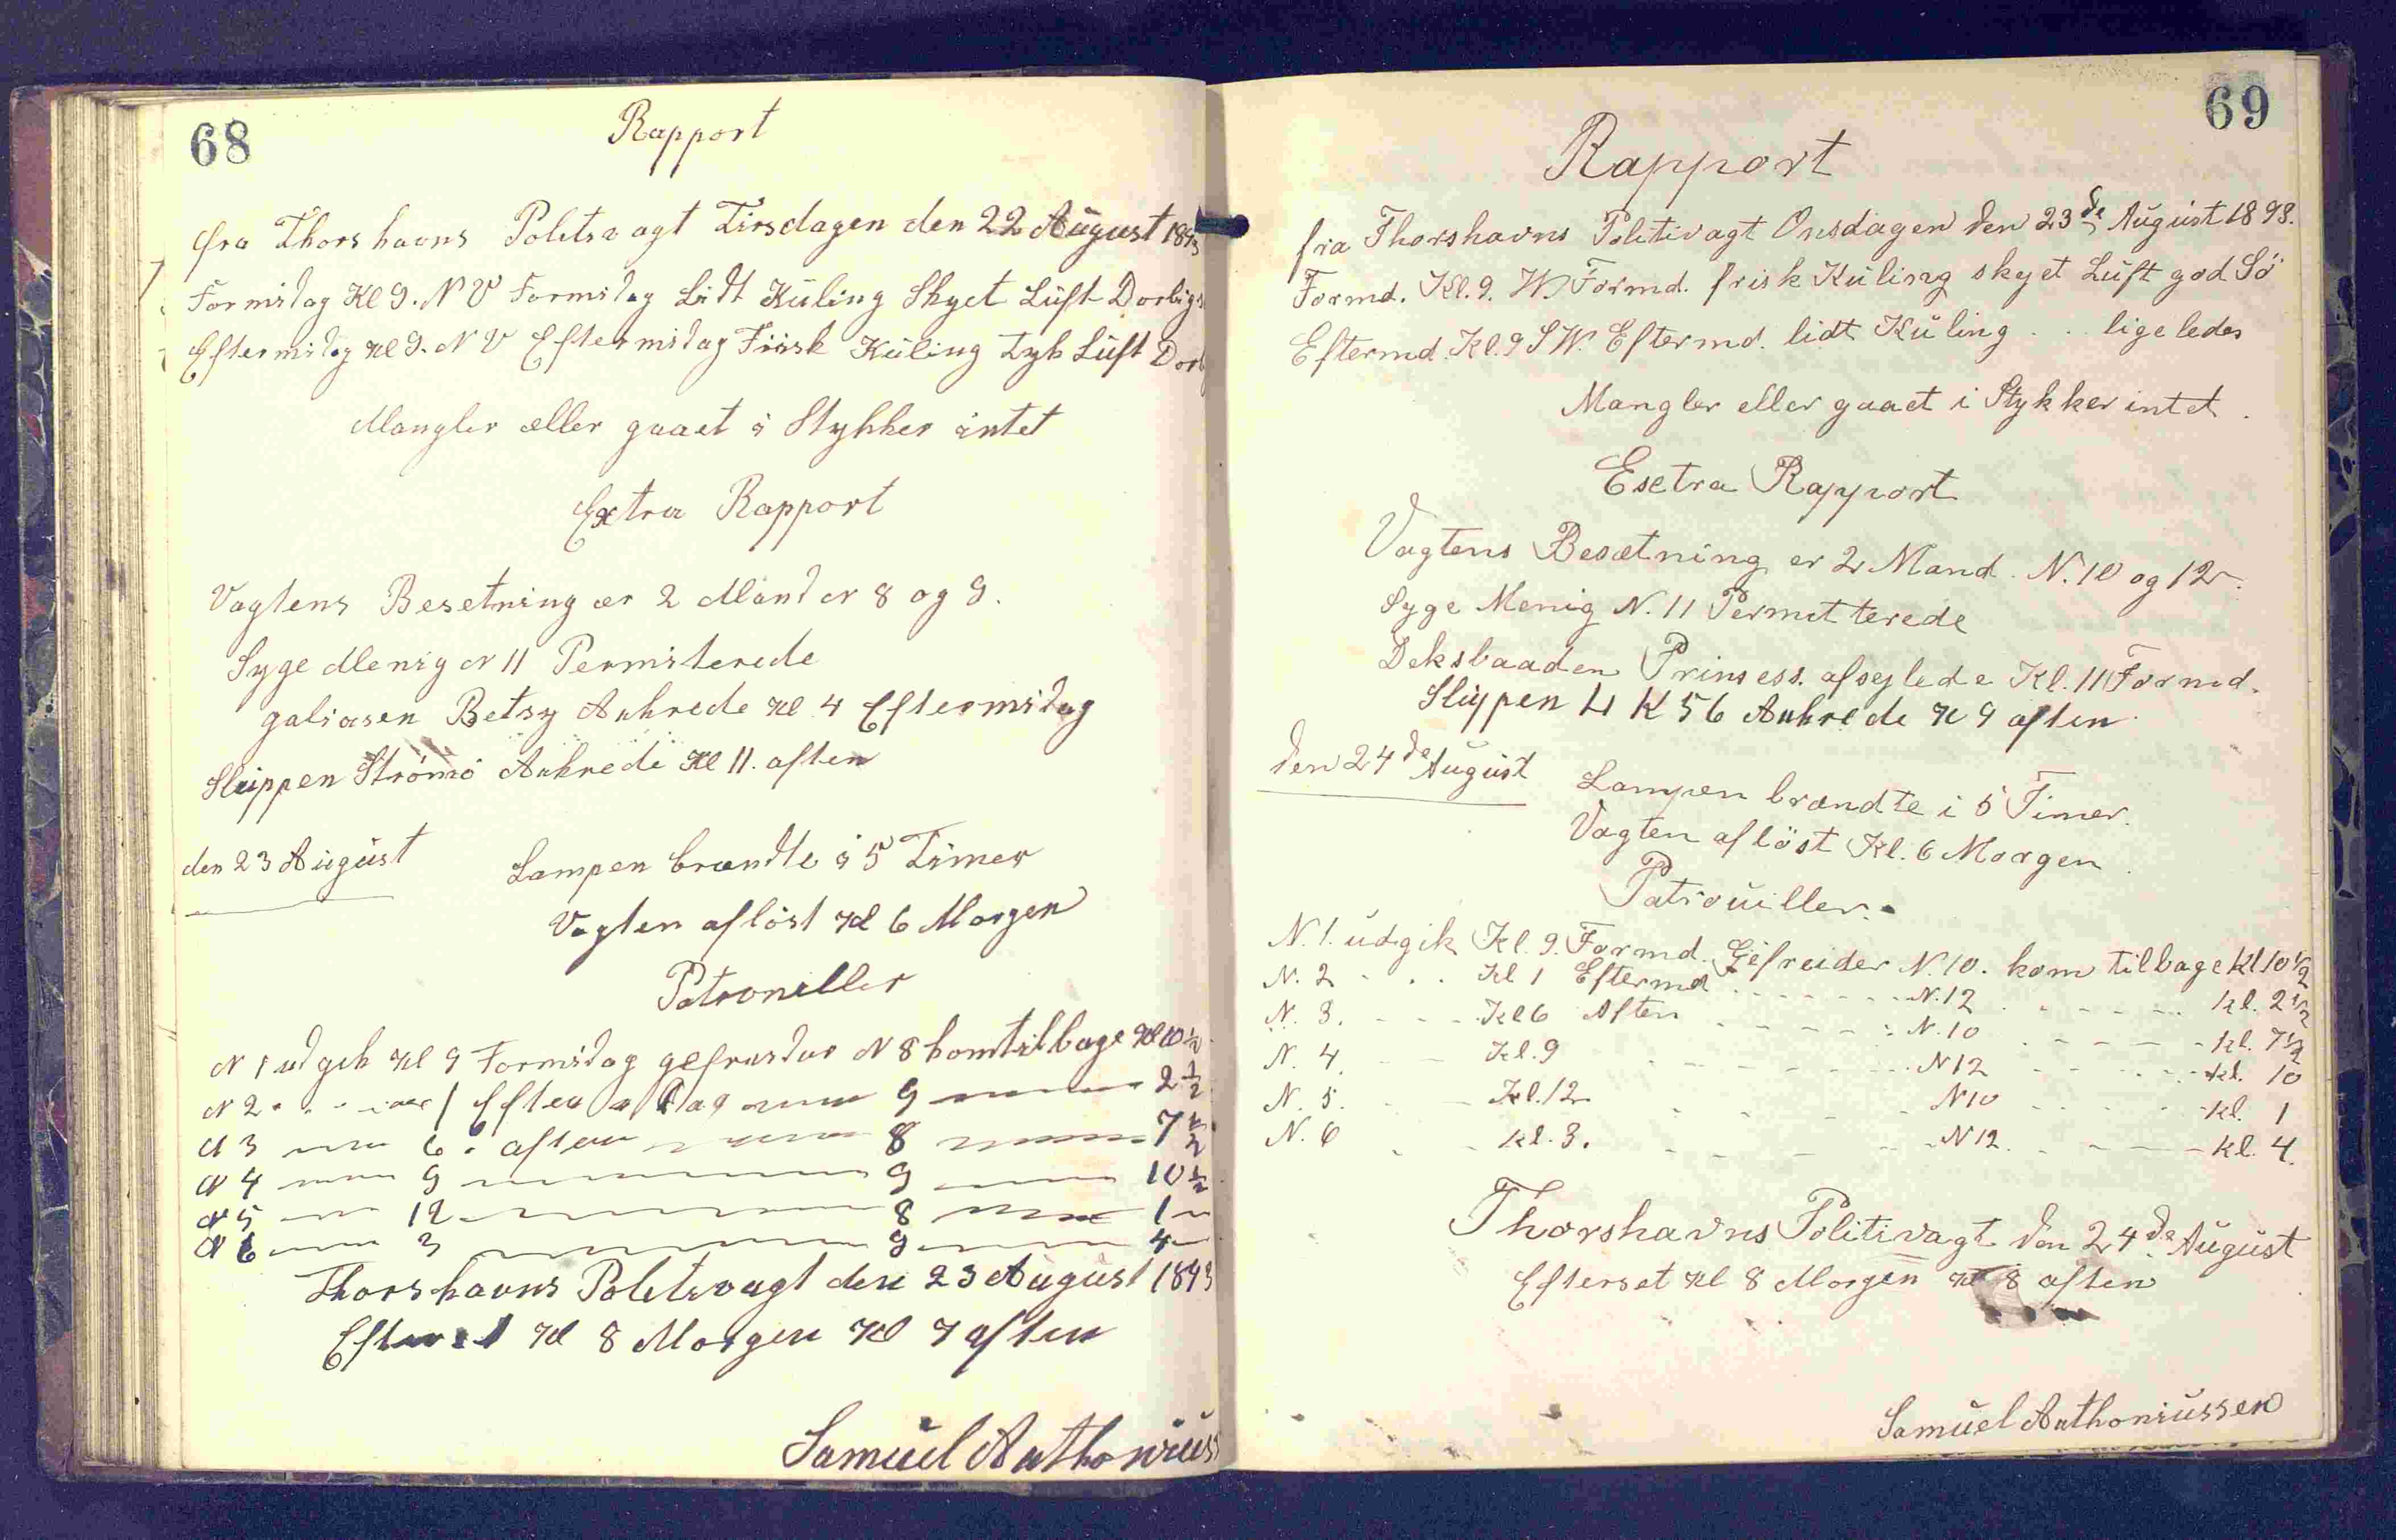 68
Rapport
fra Thorshavns Politivagt Tirsdagen den 22 August 1893
Formidag Kl 9. N V Formidag Lidt Küling Skyet Lüft Dorlig
Eftermidag Kl 9. N V Eftermidag Frisk Küling tyk Lüft Dorl
Mangler eller gaaet i Stykker intet
Extra Rapport
Vagtens Besetning er 2 Mand N 8 og 9.
Syge Menig N 11 Permiterede
galiasen Betsy Ankrede Kl 4 Eftermidag
Sluppen Strömö Ankrede Kl 11. aften
den 23 Aügüst
Lampen brændte i 5 Timer
Vagten aflöst Kl 6 Morgen
Patroniller
N 1 udgik Kl 9 Formidag gefreider N 8 kom tilbage Kl 10 1/2
N 2 1 9 2 1/2
N 3 6. aften 8 7 1/2
N 4 9 9 10 1/2
N 5 12 8 1
N 6 3 9 4
Thorshavns Politivagt den 23 Aügüst 1893
Efterset Kl 8 Morgen Kl 7 aften
Samüel Anthoniüss
69
Rapport
fra Thorshavns Politivagt Onsdagen den 23de Aügüst 1893.
Formd. Kl. 9. W. Formd. frisk Küling skyet Lüft god Sö
Eftermd. Kl. 9 SW. Eftermd. lidt Küling . . ligeledes
Mangler eller gaaet i Stykker intet.
Esctra Rapport
Vagtens Besætning er 2 Mand. N. 10 og 12.
Syge Menig N. 11 Permitterede
Deksbaaden Prinsess. afsejlede Kl. 11 Formd.
Slüppen L K 56 Ankrede Kl 9 aften
den 24de Aügüst
Lampen brændte i 5 Timer.
Vagten aflöst Kl. 6 Morgen.
Patroüiller.
N. 1. üdgik Kl. 9. Formd. Gefreider N. 10. kom tilbage Kl 10 1/2
N. 2 Kl 1 Eftermd N. 12 Kl. 2 1/2
N. 3. Kl 6 Aften N. 10 Kl. 7 1/2
N. 4. Kl. 9 N 12 Kl. 10
N. 5. Kl. 12 N 10 Kl. 1
N. 6 Kl. 3. N 12. Kl. 4.
Thorshavns Politivagt den 24de Aügüst
Efterset Kl 8 Morgen Kl 8 aften
Samüel Anthoniüssen